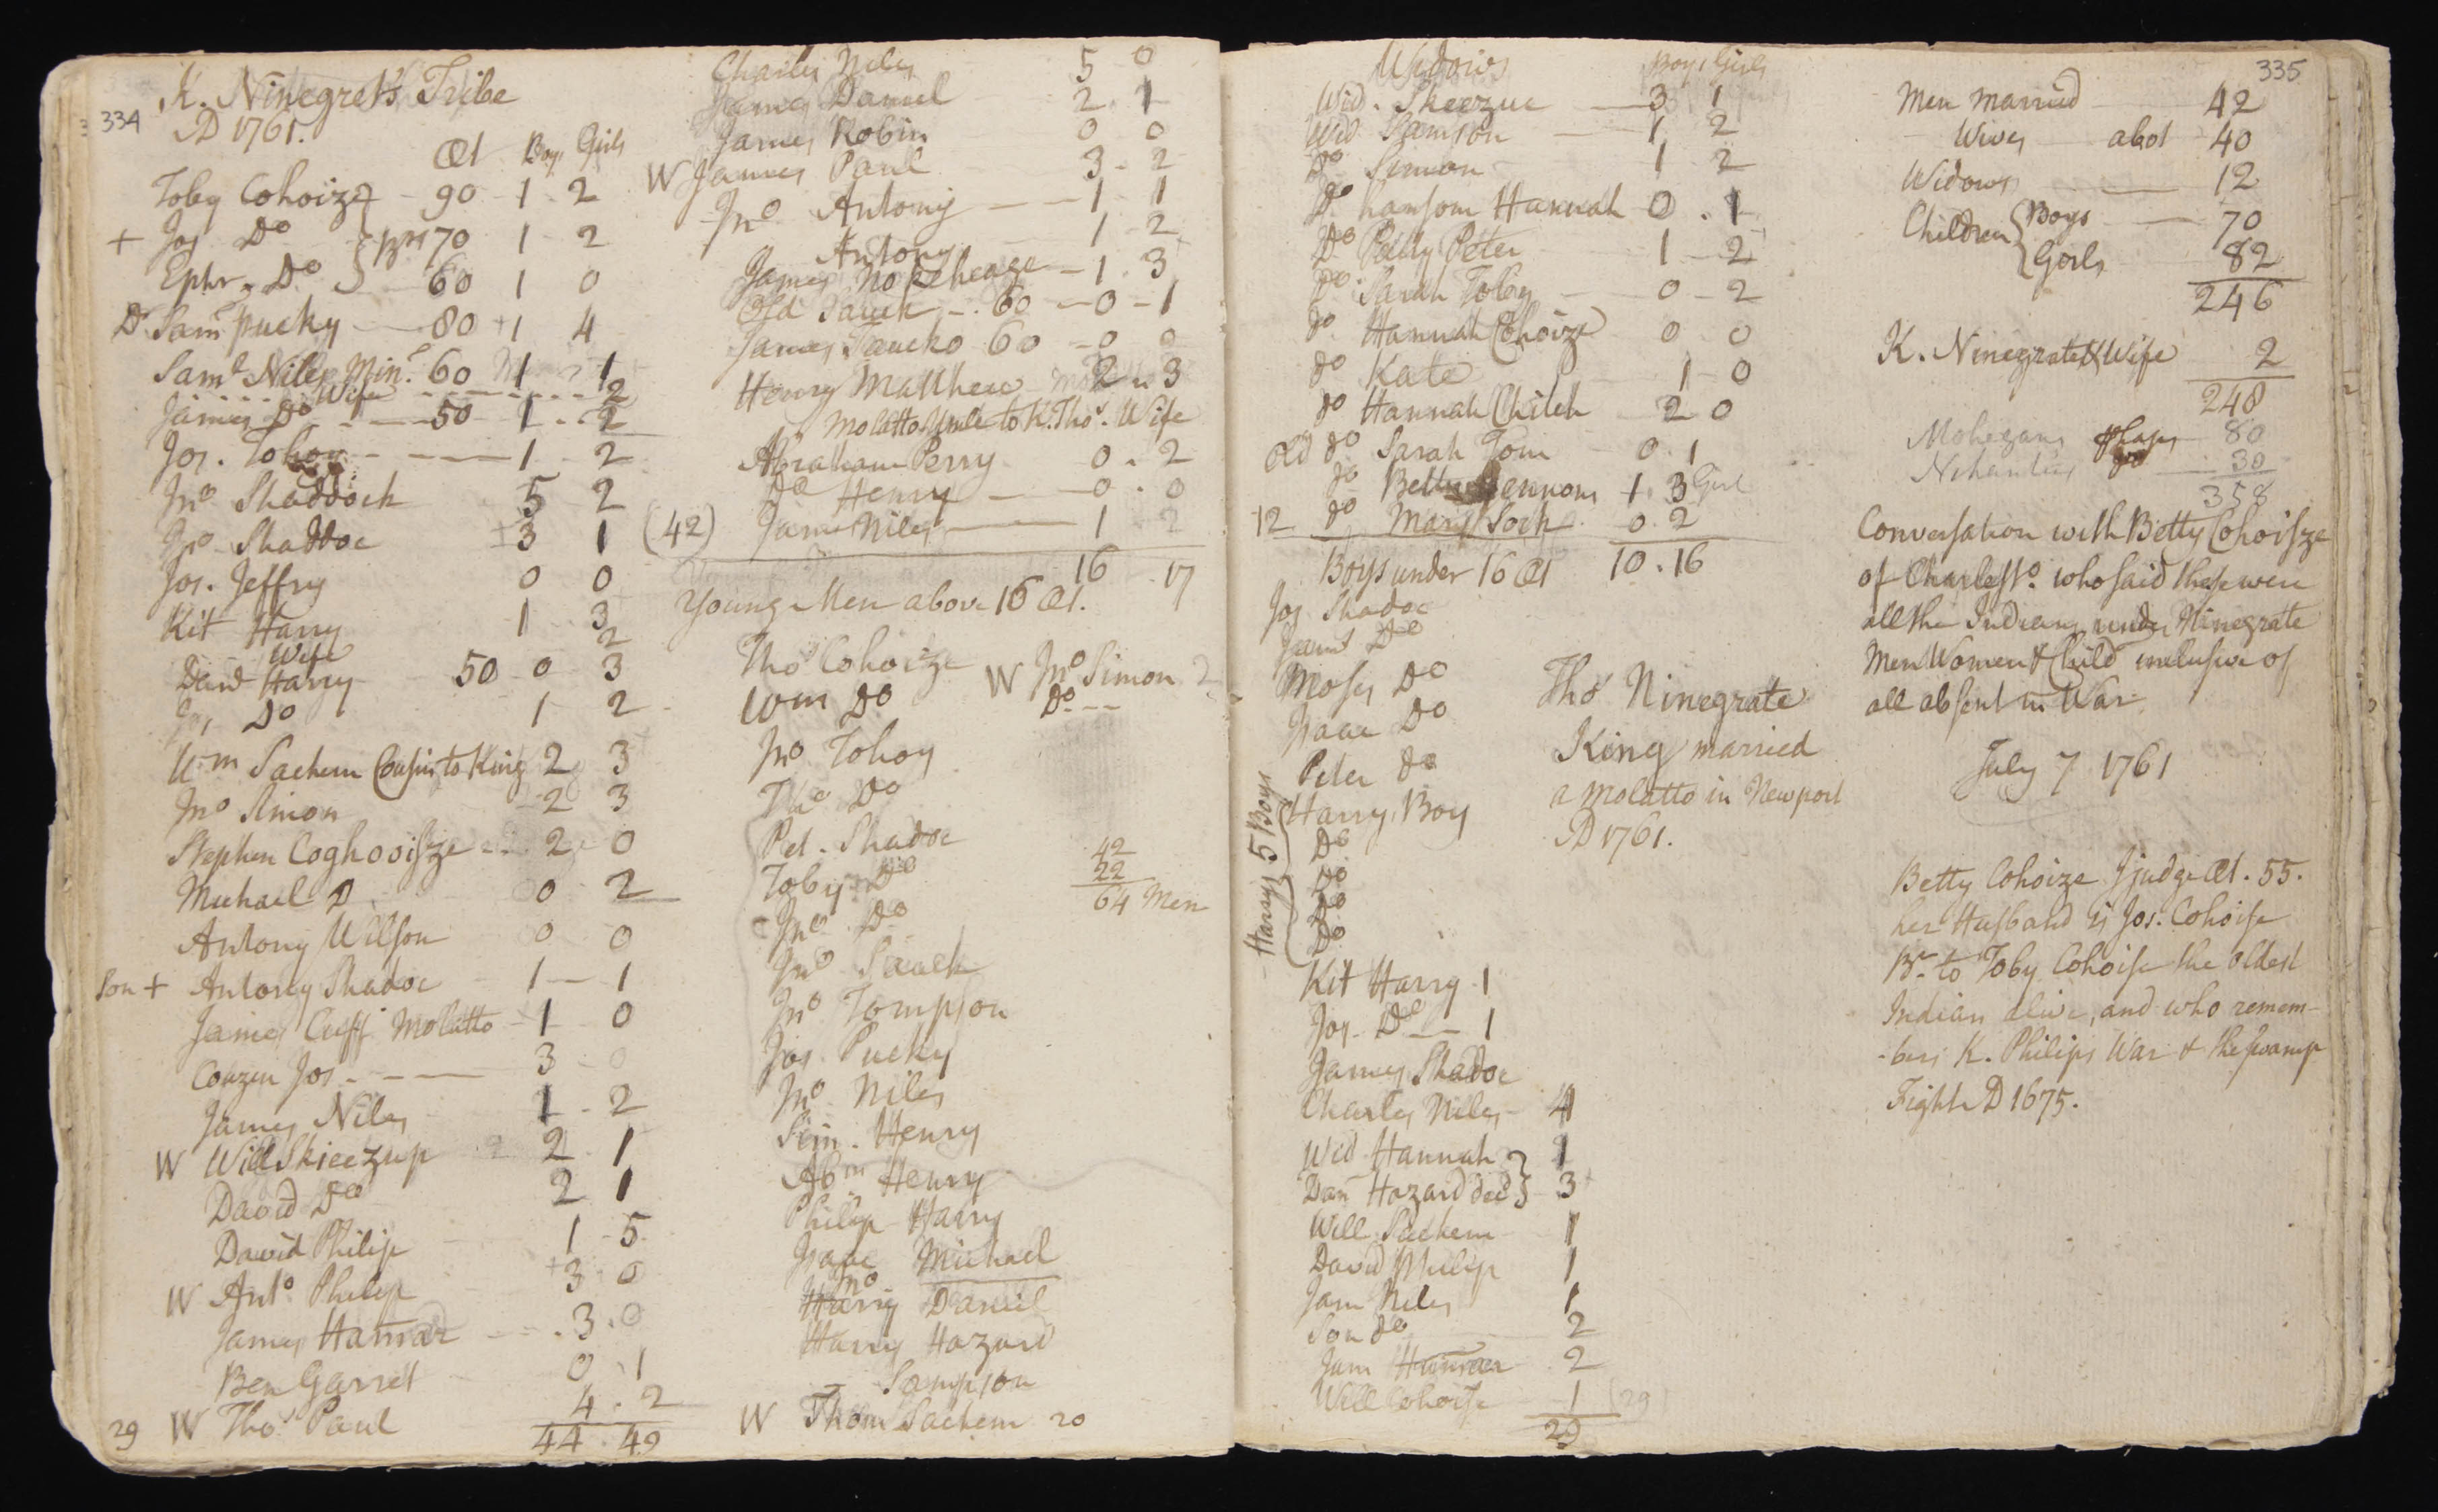 334
K. Ninegret's Tribe
AD 1761.
Æt Boys Girls
Toby Cohoize - 90 - 1 - 2
+ Jos Do } Brs 70 1 - 2
Ephr. Do 60 1 0
D Sam Pucky - 80 + 1 4
Saml Niles Minr 60 1 1
Wife 2
James Do - 50 - 1 - 2
Jos. Tohoy - 1 - 2
Jno Shaddock 5 2
Jno Shaddoc 3 1
Jos. Jeffry 0 0
Kit Harry 1 3
Wife 2
Davd Harry 50 - 0 - 3
Jos Do 1 - 2
Wm Sachem Cousin to King 2 3
Jno Simon 2 3
Stephen Coghooisze - 2 - 0
Michael D 0 - 2
Antony Wilson 0 0
Son + Antony Shadoc 1 - 1
James Cuff Molatto - 1 0
Couzen Jos. - 3 - 0
James Niles 1 - 2
W Will Skieezup 2 . 1
David Do 2 1
David Philip 1 - 5
W Anto. Philip +3 - 0
James Hamar . 3 . 0
Ben Garret 0 . 1
29 W Tho' Paul 4 . 2
44 . 49
Charles Niles 5 - 0
James Daniel 2 . 1
James Robin 0 0
W James Paul 3 - 2
Jno Antony - 1 - 1
Antony 1 - 2
James Nokeheage - 1 . 3
Old Sauck - 60 - 0 - 1
James Saucko 60 - 0 0
Henry Matthew 2 3
Molatto Uncle to K. Tho's. Wife
Abraham Perry 0 . 2
Do Henry - 0 . 0
(42) Jame Niles - 1 2
16 - 17
Young Men above 16 Æt.
Tho' Cohoize
Wm Do
W Jno Simon 2
Do --
Jno Tohoy
Tho Do
Pet. Shadoc
Toby Do
42
22
64 Men
Jno Do
Jno Sauck
Jno Tompson
Jos. Pucky
Jno Niles
Sim. Henry
Abm Henry
Philip Harry
Isaac Michael
Jno
Harry Daniel
Harry Hazard
- Sampson
W Thom Sachem 20
335
Widows Boys Girls
Wid. Skeezuc - 3 1
Wid Samson - 1 2
Do Simon - 1 2
Do hansom Hannah 0 . 1
Do Patty Peter 1 - 2
Do Sarah Toby - 0 - 2
do Hannah Cohoize 0 0
do Kate 1 - 0
do Hannah Chitch 2 0
Old do Sarah Tom 0 . 1
do Betty 1 . 3 Girl
12 do Mary Sock 0 . 2
Boys under 16 Æt 10 . 16
Jos Shadoc
Jams Do
Moses Do
Isaac Do
Peter do
Harrys 5 Boys
Harry Boy
Do
Do
Do
Do
Kit Harry 1
Jos. Do - 1
James Shadoc
Charles Niles - 4
Wid Hannah } 1
Dan Hazard decd } 3
Will Sachem 1
David Philip 1
Jam Niles 1
Son do 2
Jam Hamar 2
Will Cohoise 1 (29)
29
Tho' Ninegrate
King married
a Molatto in Newport
AD 1761.
Men married 42
Wives abot 40
Widows - 12
Children { Boys - 70
Girls 82
246
K. Ninegrate & Wife 2
248
Mohegans phaps 80
Nihantics do 30
358
Conversation with Betty Cohoisze
of Charlesto. who said these were
all the Indians under Ninegrate
Men Women & Child inclusive of
all absent in War.
July 7 1761
Betty Cohoize I judge Æt. 55.
her Husband is Jos. Cohoise
Br. to Toby Cohoise the oldest
Indian alive, and who remem-
-bers K. Philips War & the Swamp
Fight AD 1675.